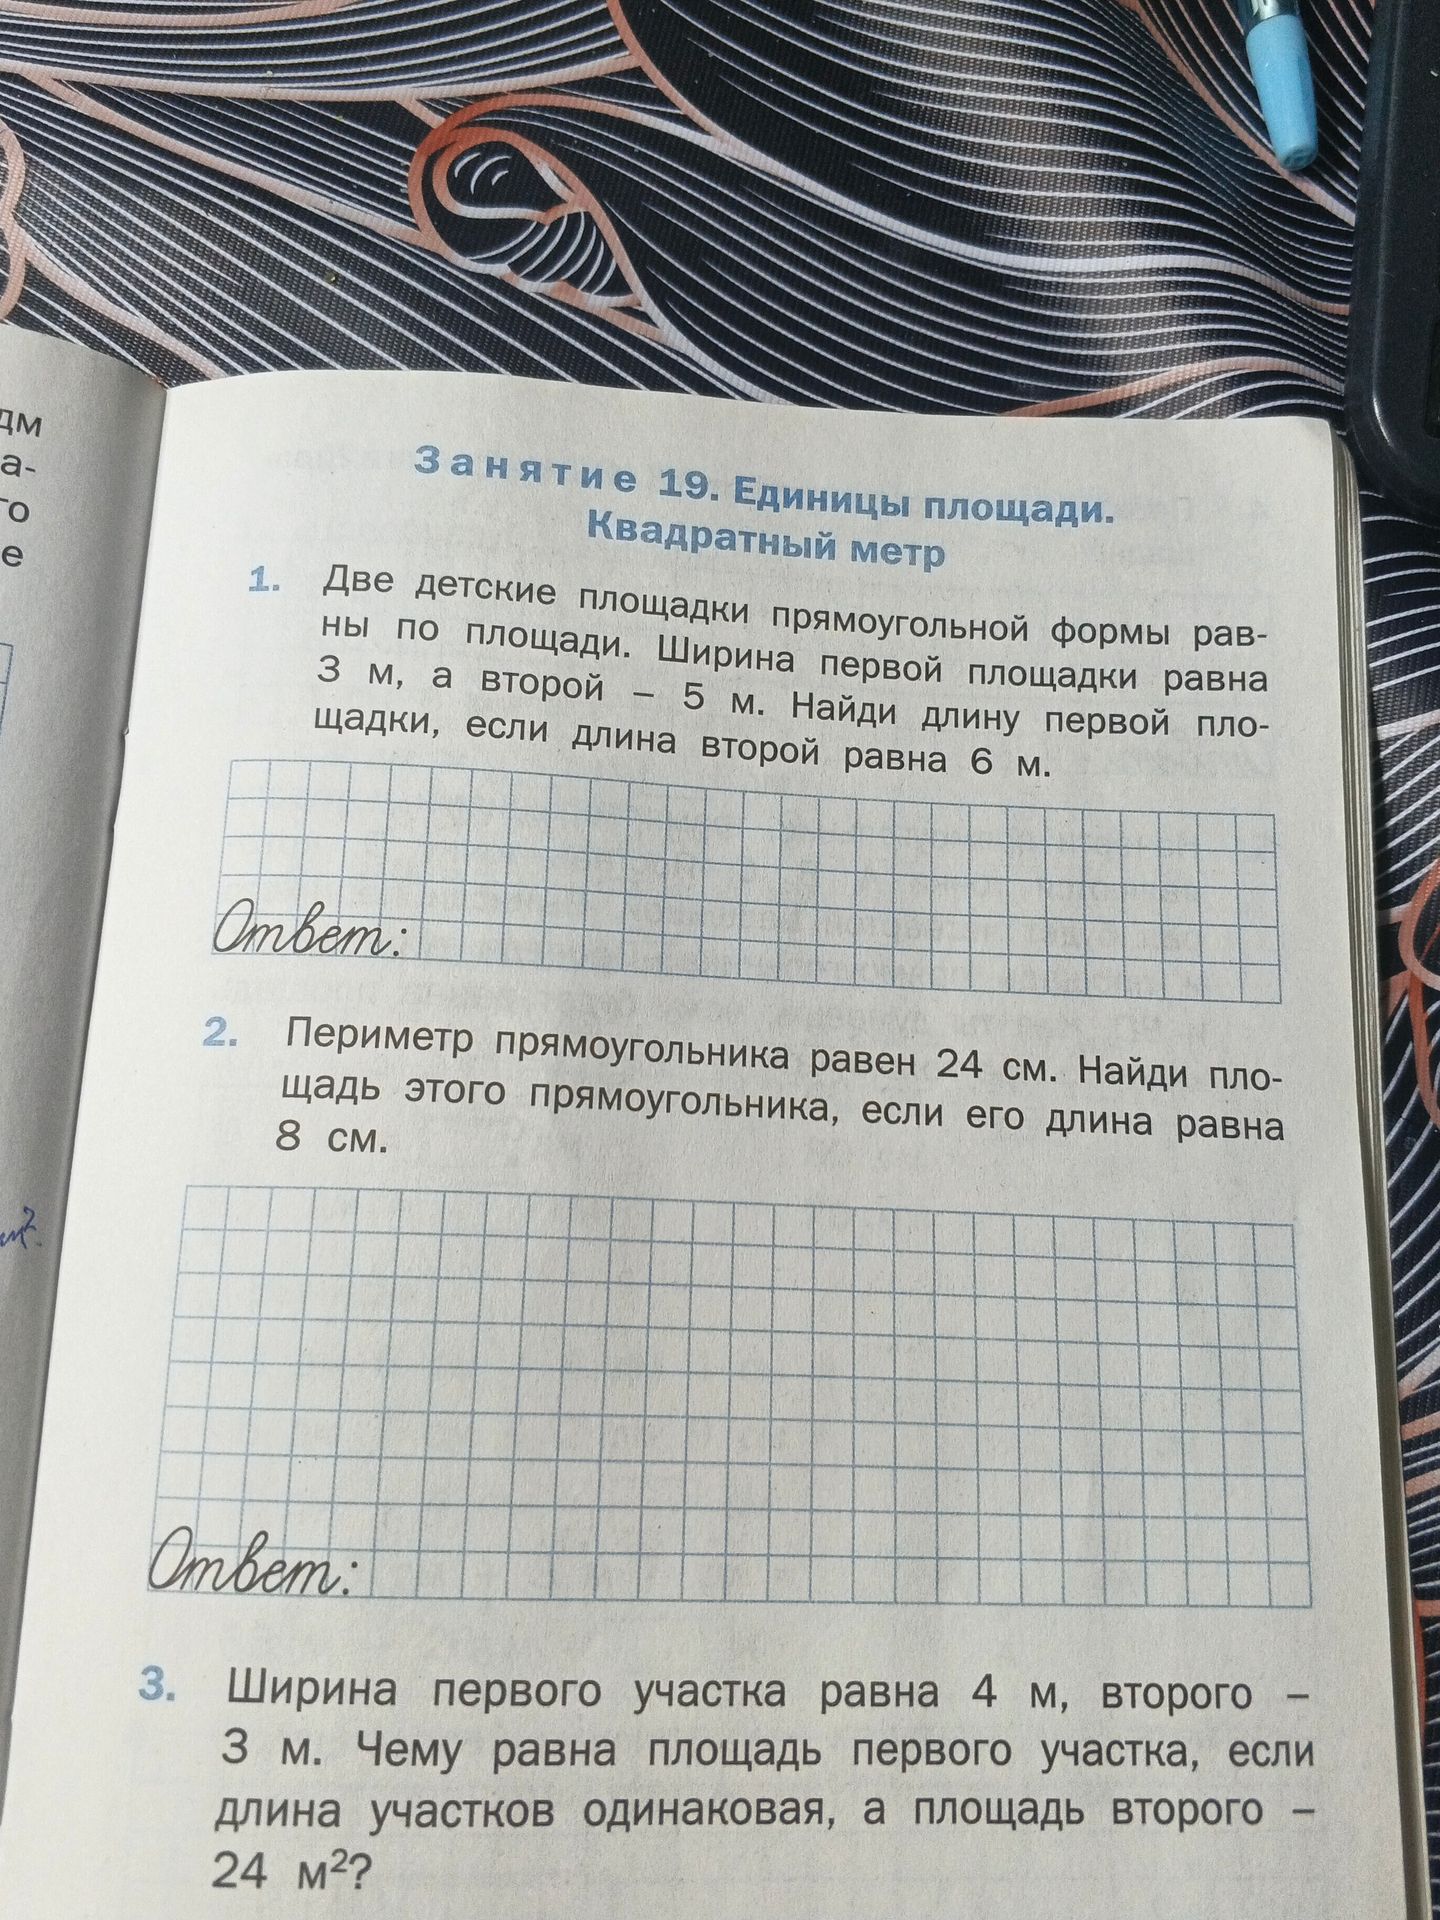 дм
а-
го
е
м².
Занятие 19. Единицы площади.
Квадратный метр
1. Две детские площадки прямоугольной формы рав-
ны по площади. Ширина первой площадки равна
3 м, а второй – 5 м. Найди длину первой пло-
щадки, если длина второй равна 6 м.
Ответ:
2. Периметр прямоугольника равен 24 см. Найди пло-
щадь этого прямоугольника, если его длина равна
8 см.
Ответ:
3. Ширина первого участка равна 4 м, второго –
3 м. Чему равна площадь первого участка, если
длина участков одинаковая, а площадь второго –
24 м²?